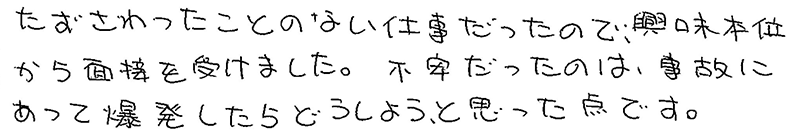 たずさわったことのない仕事だったので、興味本位
から面接を受けました。不安だったのは、事故に
あって爆発したらどうしよう、と思った点です。